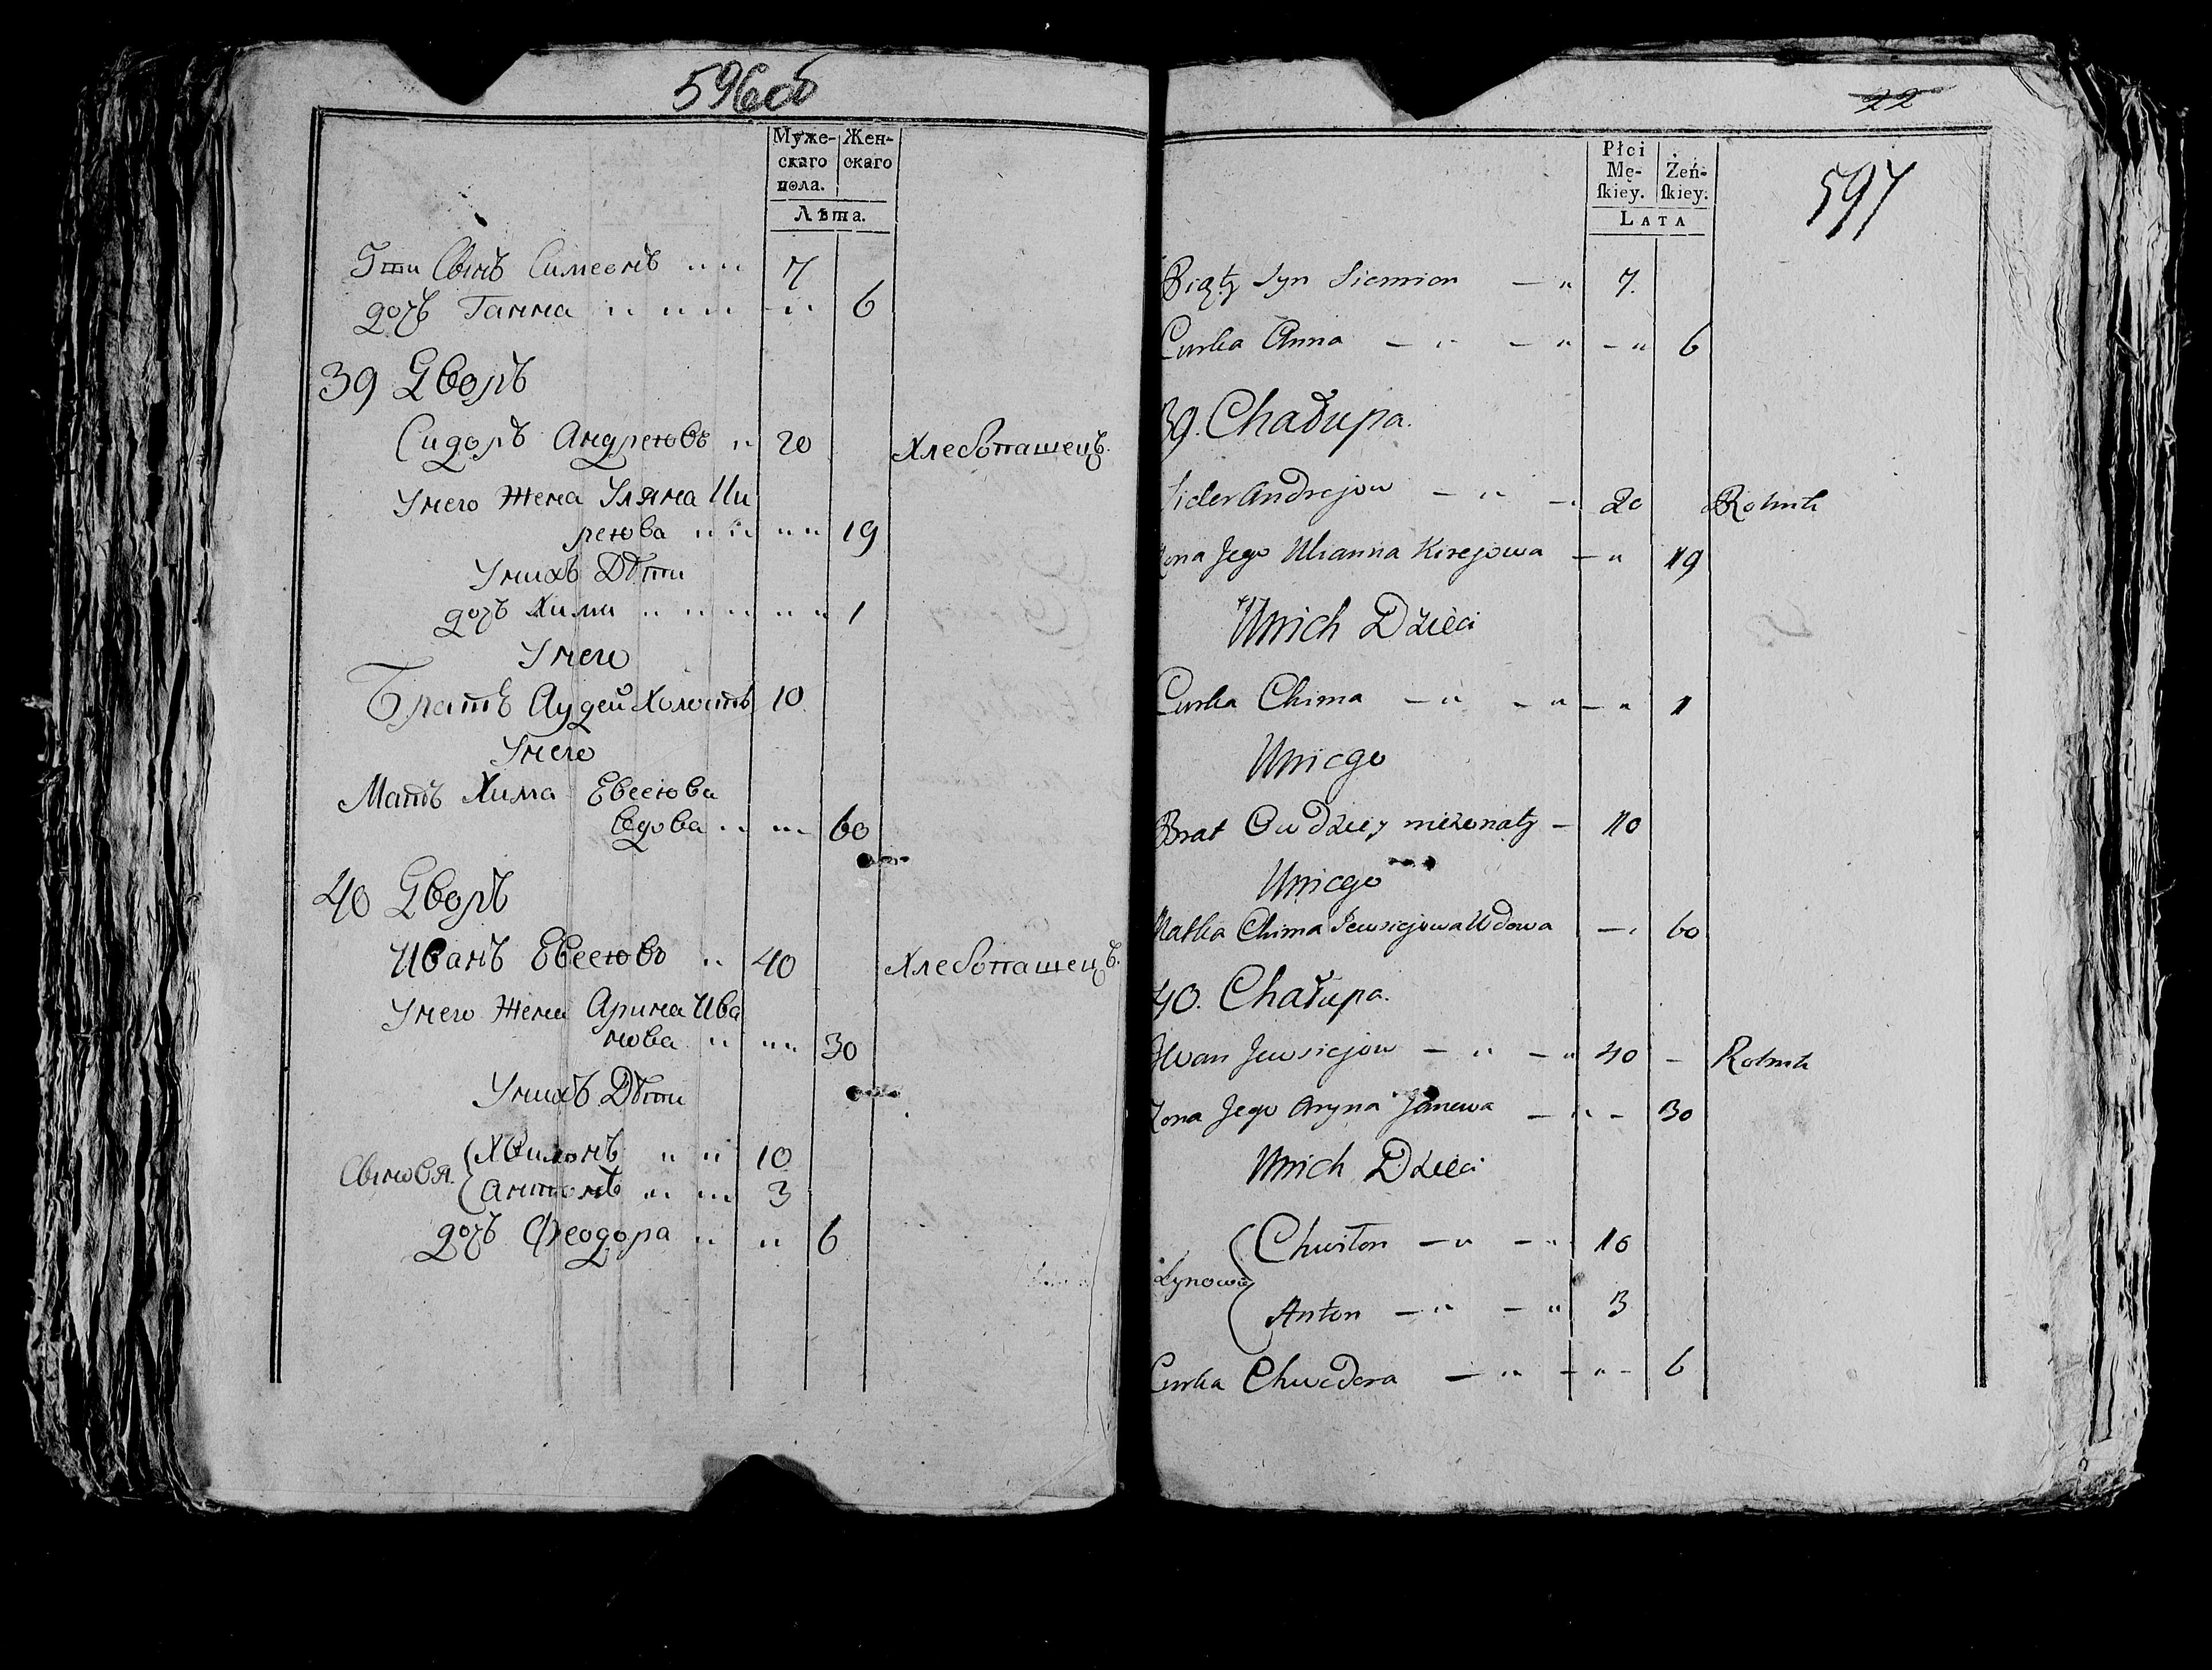 596об
Муже-
скаго
пола.
Жен-
скаго
Лѣта.
5ти Сынъ Симеонъ 7
дочь Ганна 6
39 Дворъ
Сидоръ Андреювъ 20 Хлебопашецъ.
Унего Жена Уляна Ки
реюва 19
Унихъ Дѣти
дочь Хима 1
Унего
Братъ Аудей Холостъ 10
Унего
Мать Хима Евсеюва
Вдова 60
40 Дворъ
Иванъ Евсеювъ 40 Хлебопашецъ.
Унего Жена Арина Ива
нова 30
Унихъ Дѣти
Сыновя. Хвилонъ 10
Антонъ 3
дочь Феодора 6
22
597
Płci
Mę-
ſkiey.
Żeń-
ſkiey:
LATA
Piąty Syn Siemion 7.
Curka Anna 6
39. Chałupa.
Sidor Andrejow 20 Rolnik
Zona Jego Ulianna Kirejowa 19
Unich Dzieci
Curka Chima 1
Uniego
Brat Owdziey nieżonaty 10
Uniego
Matka Chima Jewsiejowa Wdowa 60
40. Chałupa.
Iwan Jewsiejow 40 Rolnik
Zona Jego Aryna Janowa 30
Unich Dzieci
Synowie Chwiłon 10
Anton 3
Curka Chwedora 6